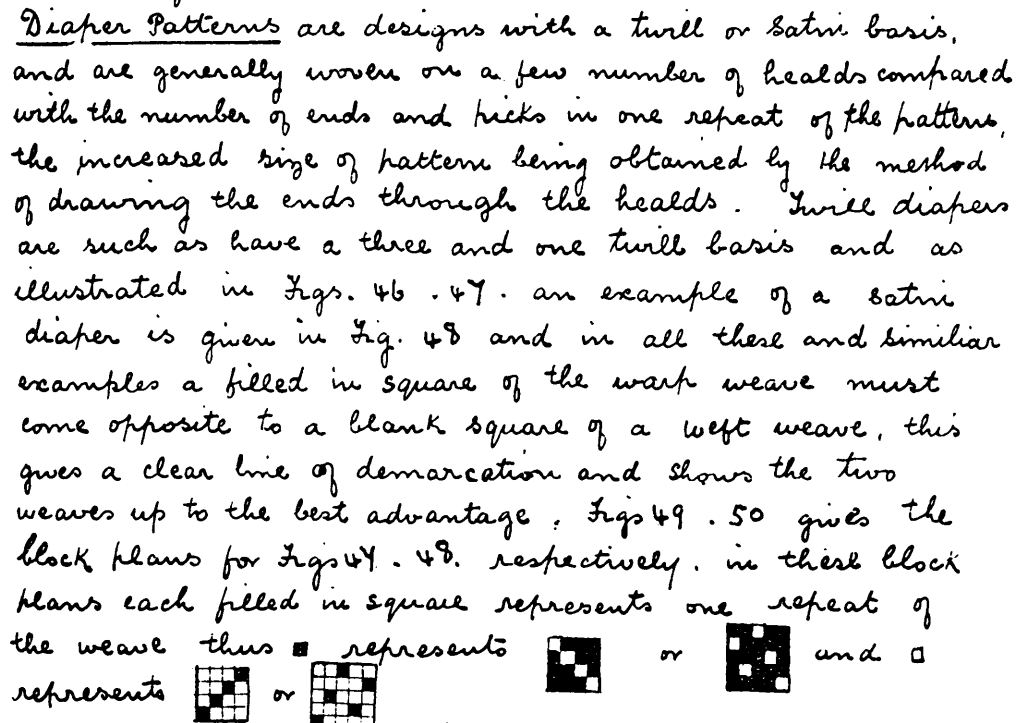 Diaper Patterns are designs with a twill or satin basis,
and are generally woven on a few number of healds compared
with the number of ends and picks in one repeat of the pattern,
the increased size of pattern being obtained by the method
of drawing the ends through the healds. Twill diapers
are such as have a three and one twill basis and as
illustrated in Figs. 46 . 47 . an example of a satin
diaper is given in Fig. 48 and in all these and similiar
examples a filled in square of the warp weave must
come opposite to a blank square of a weft weave, this
gives a clear line of demarcation and shows the two
weaves up to the best advantage. Figs 49 . 50 gives the
block plans for Figs 47 . 48. respectively. in these block
plans each filled in square represents one repeat of
the weave thus ■ represents or and □
represents or